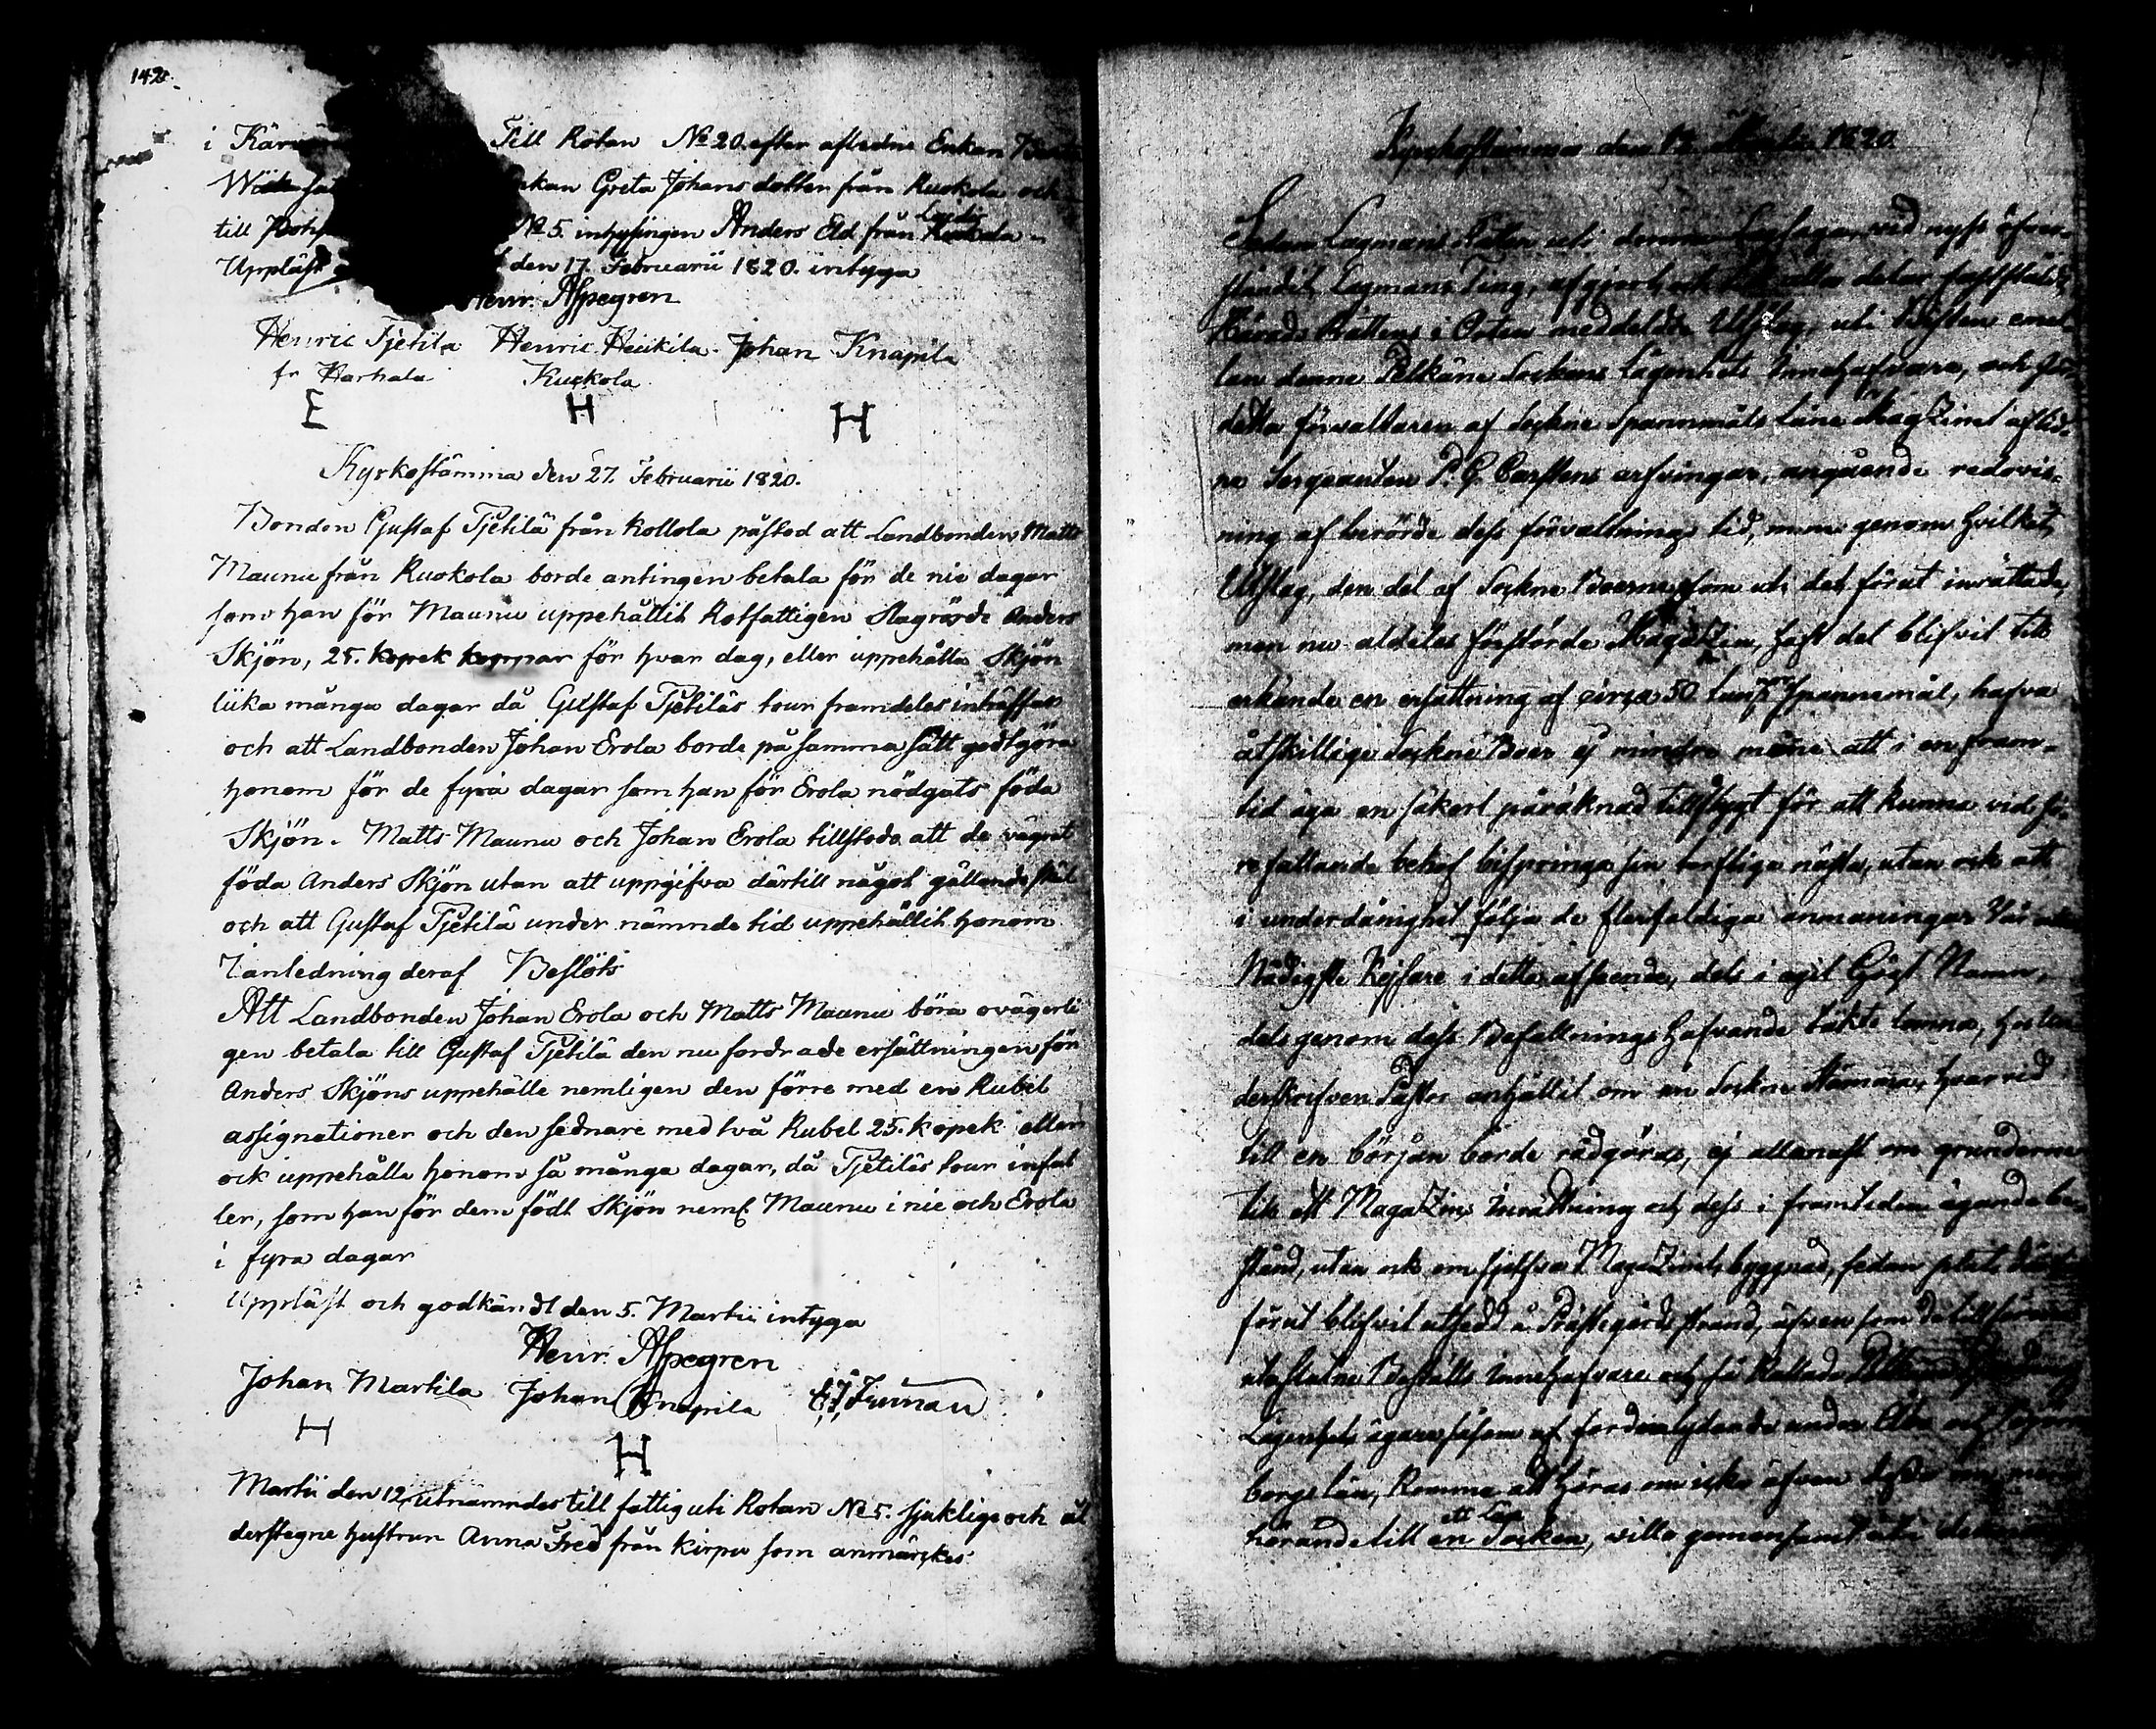 142.
i Kärv Till Rotan No 20. efter aflidne Enkan
Enkan Greta Johansdotter från Ruokola och
till No 5. inhysingen Anders Eld från
Uppläst den 17. Februarii 1820. intyga
Henr. Alpegren
Henric Tjetilä Henric Heikila Johan Knapila
fr Harhala Kuckola
E H H
Kyrkostämma den 27. Februarii 1820.
Bonden Gustaf Tjetilä från Kollola påstod att Landbonden Matts
Maunu från Ruokola borde antingen betala för de nie dagar
som han för Maunu uppehållit Rotfattigen Slagrörde Anders
Skjön, 25. kopek koppar för hvar dag, eller uppehålla Skjön
lika många dagar då Gustaf Tjetiläs tour framdeles inträffar
och att Landbonden Johan Erola borde på samma sätt godtgöra
honom för de fyra dagar som han för Erola nödgats föda
Skjön. Matts Maunu och Johan Erola tillstodo att de vägrat
föda Anders Skjön utan att uppgifva därtill något gällande skäl
och att Gustaf Tjetilä under nämnde tid uppehållit honom
I anledning deraf Beslöts
Att Landbonden Johan Erola och Matts Maunu böra ovägerli
gen betala till Gustaf Tjetilä den nu fordrade ersättningen för
Anders Skjöns uppehälle nemligen den förre med en Rubel
assignationer och den sednare med två Rubel 25. kopek eller
ock uppehålla honom så många dagar, då Tjetiläs tour infal
ler, som han för dem födt Skjön neml. Maunu i nie och Erola
i fyra dagar
Uppläst och godkändt den 5. Martii intyga
Henr. Alpegren
Johan Martila Johan Knapila
H
H
Martii den 12. utnämndes till fattig uti Rotan No 5. sjuklige och ål
derstegne hustrun Anna Fred från Kirpu som anmärkes
Kyrkostämma den 12 Martii 1820.
Sedan Lagmans Rätten uti denna Lagsaga, vid nyss öfver-
ståndit Lagmans Ting, afgjort och till alla delar fastställt
Härads Rättens i Orten meddelde Utslag, uti tvisten emel
lan denne Pelkäne Sockens Lägenhets Innehafvare, och
detta förvaltaren af Sockne Spannmåls Låne Magzinet aflid-
ne Sergeanten P. G. Carstens arfvingar, angående redovis-
ning af berörde dess förvaltnings tid, men genom hvilket
Utslag, den del af Sockne Boerne, som uti det förut inrättade,
men nu aldeles förstörde Magazin, haft del blifvit till
erkände en ersättning af circa 50 tunnor Spannemål, hafva
åtskillige Sockne Boer ej mindre måne att i en fram-
tid äga en säkert påräknad tillflygt för att kunna vid fö-
refallande behof bispringa sin torftige nästa, utan ock att
i underdånighet följa de flerfaldiga anmaningar Vår
Nådigste Kejsare i detta afseende, dels i eget Högst Namn,
dels genom dess Befallnings hafvande täkts lemna, hos un
derskrifven Pastor anhållit om en Sockne Stämma, hvarvid
till en början borde rådgöras, ej allenast om grunderne
till ett Magazins inrättning och dess i framtiden ägande be-
stånd, utan ock om sjelfva Magazinets byggnad, sedan plats
förut blifvit utsedd å Prästegårds strand, äfven som
Boställs Innehafvare och så kallade
Lägenhets ägare såsom af
borgs län, komma att höras om icke äfven desse
ett Lag
hörande till en Socken, ville gemensamt